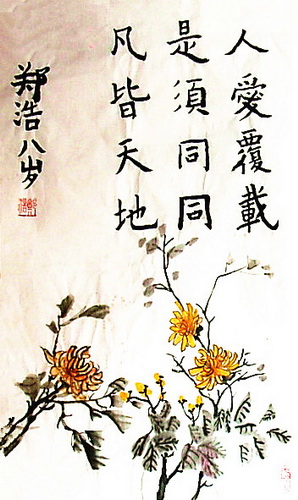 凡是人
皆須愛
天同覆
地同載
郑浩八岁